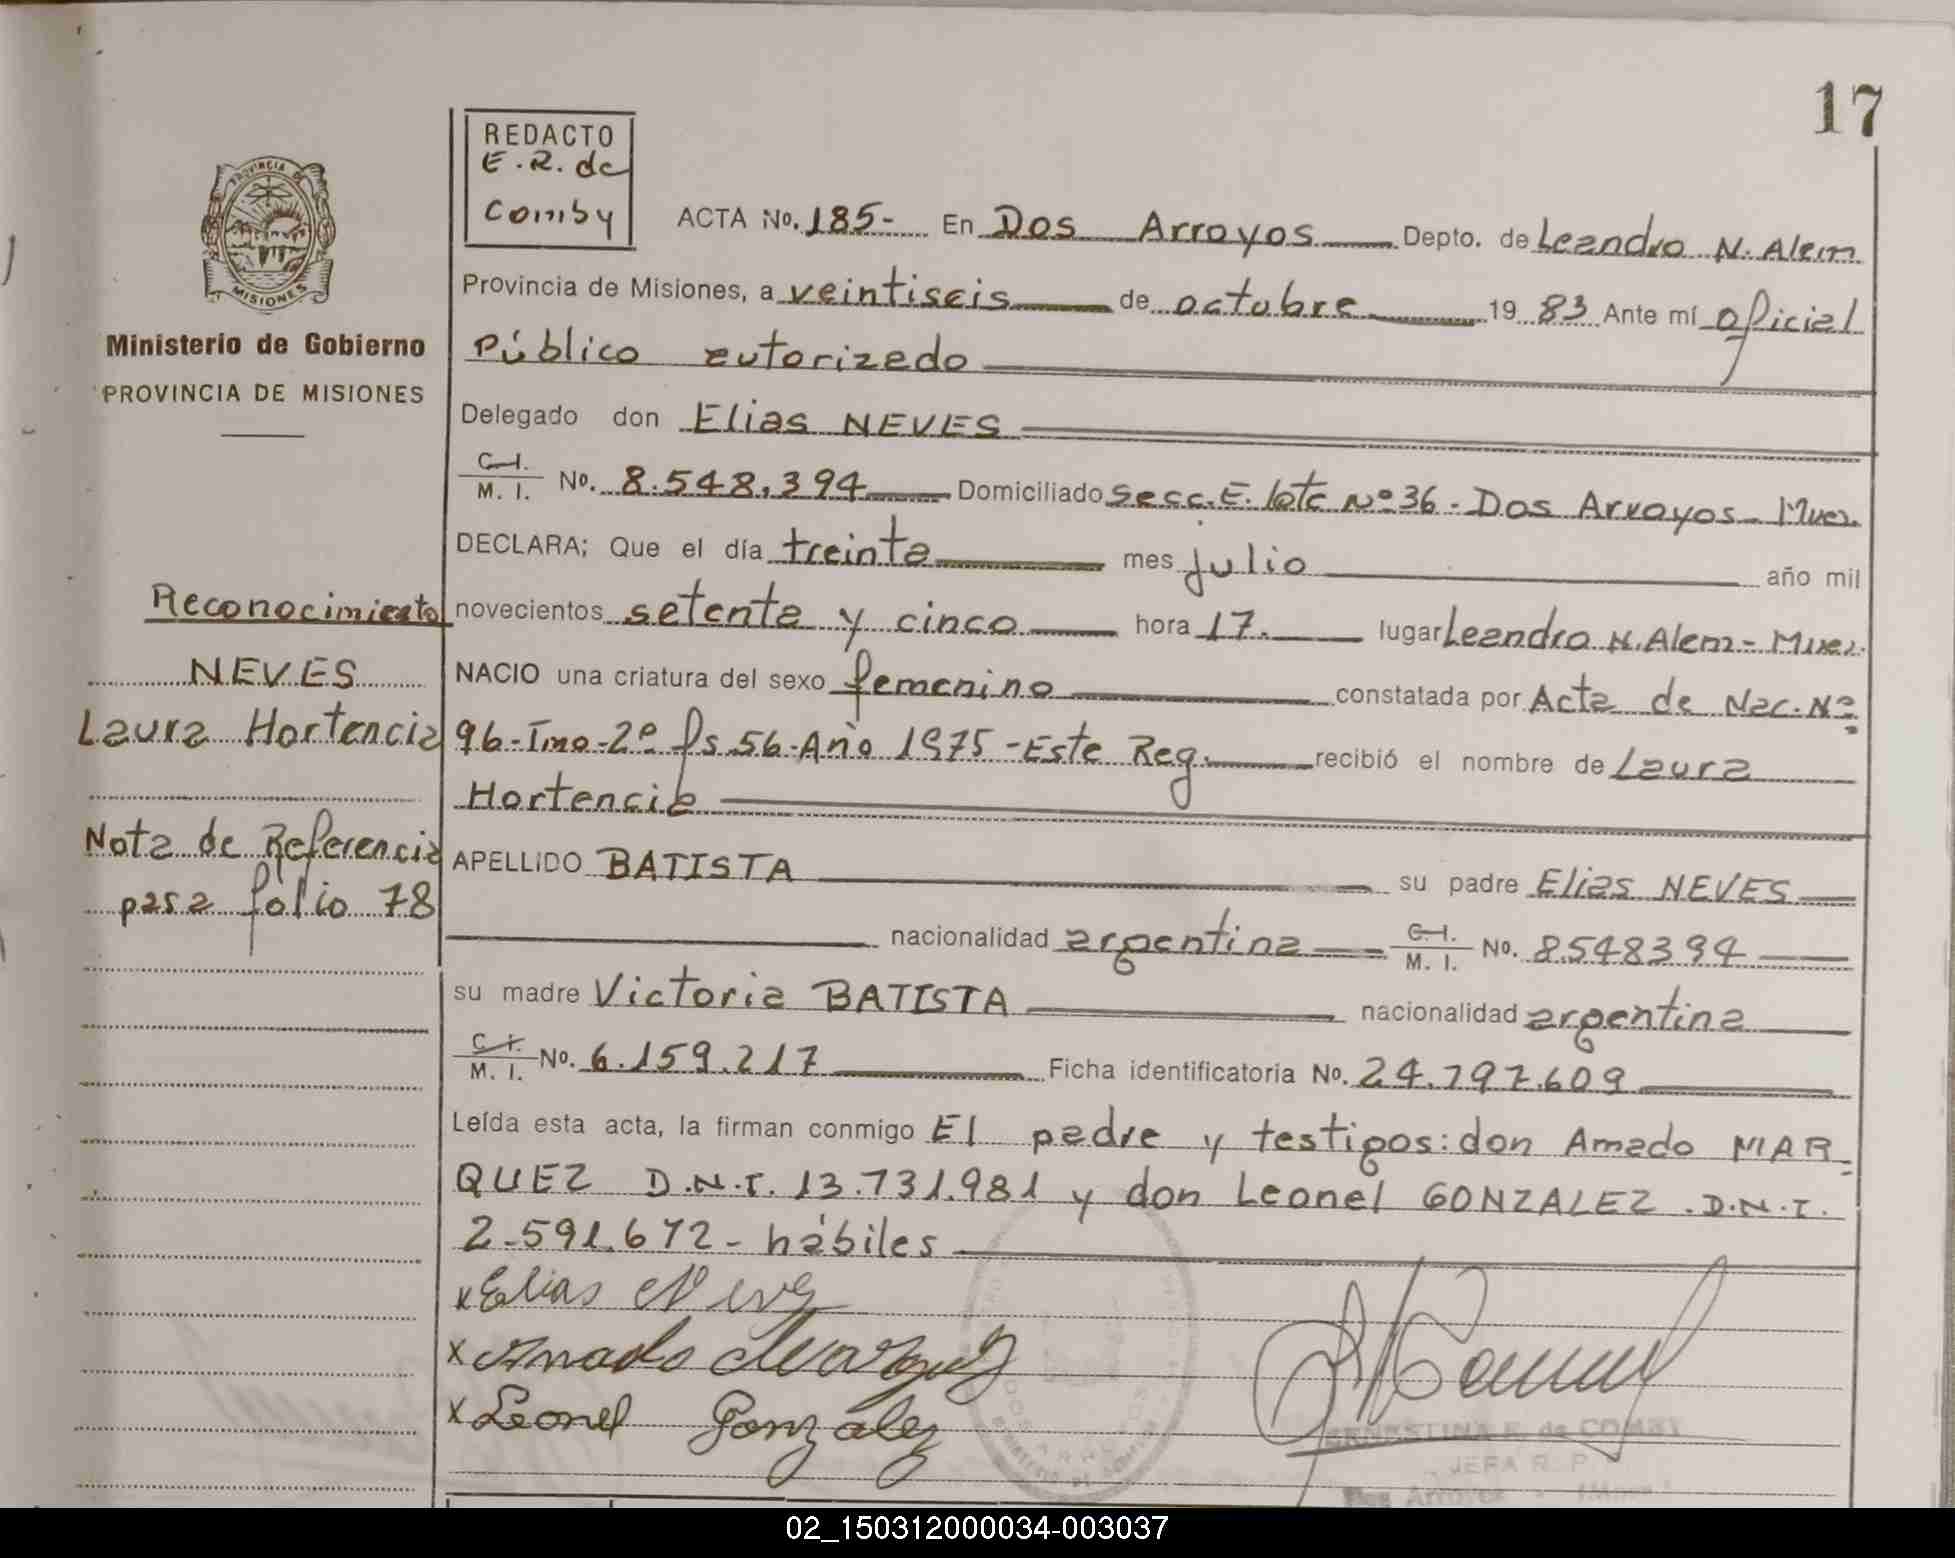 17
REDACTO
E. R. de
Comby
ACTA No. 185- En Dos Arroyos Depto. de Leandro N. Alem
Provincia de Misiones, a veintiseis de octubre 19 83 Ante mí oficial
Público autorizado
PROVINCIA DE
MISIONES
Ministerio de Gobierno
PROVINCIA DE MISIONES
Delegado don Elias NEVES
C. I.
M. I. No. 8.548.394 Domiciliado Secc. E. lote Nº 36 - Dos Arroyos - Mnes.
DECLARA; Que el día treinta mes julio año mil
novecientos setenta y cinco hora 17. lugar Leandro N. Alem - Mnes.
NACIO una criatura del sexo femenino constatada por Acta de Nac. Nº
96-Tmo-2º fs 56-Año 1975-Este Reg. recibió el nombre de Laura
Hortencia
APELLIDO BATISTA su padre Elias NEVES
nacionalidad argentina C. I.
M. I. No. 8548394
su madre Victoria BATISTA nacionalidad argentina
C. I.
M. I. No. 6.159.217 Ficha identificatoria No. 24.797.609
Leída esta acta, la firman conmigo El padre y testigos: don Amado MAR-
QUEZ D.N.I. 13.731.981 y don Leonel GONZALEZ . D.N.I.
2.591.672 - hábiles
Reconocimiento
NEVES
Laura Hortencia
Nota de Referencia
pasa folio 78
x Elias Neves
x Amado Marquez
x Leonel Gonzalez
ERNESTINA R. de COMBY
JEFA R. P.
Dos Arroyos - (Mnes.)
02_150312000034-003037